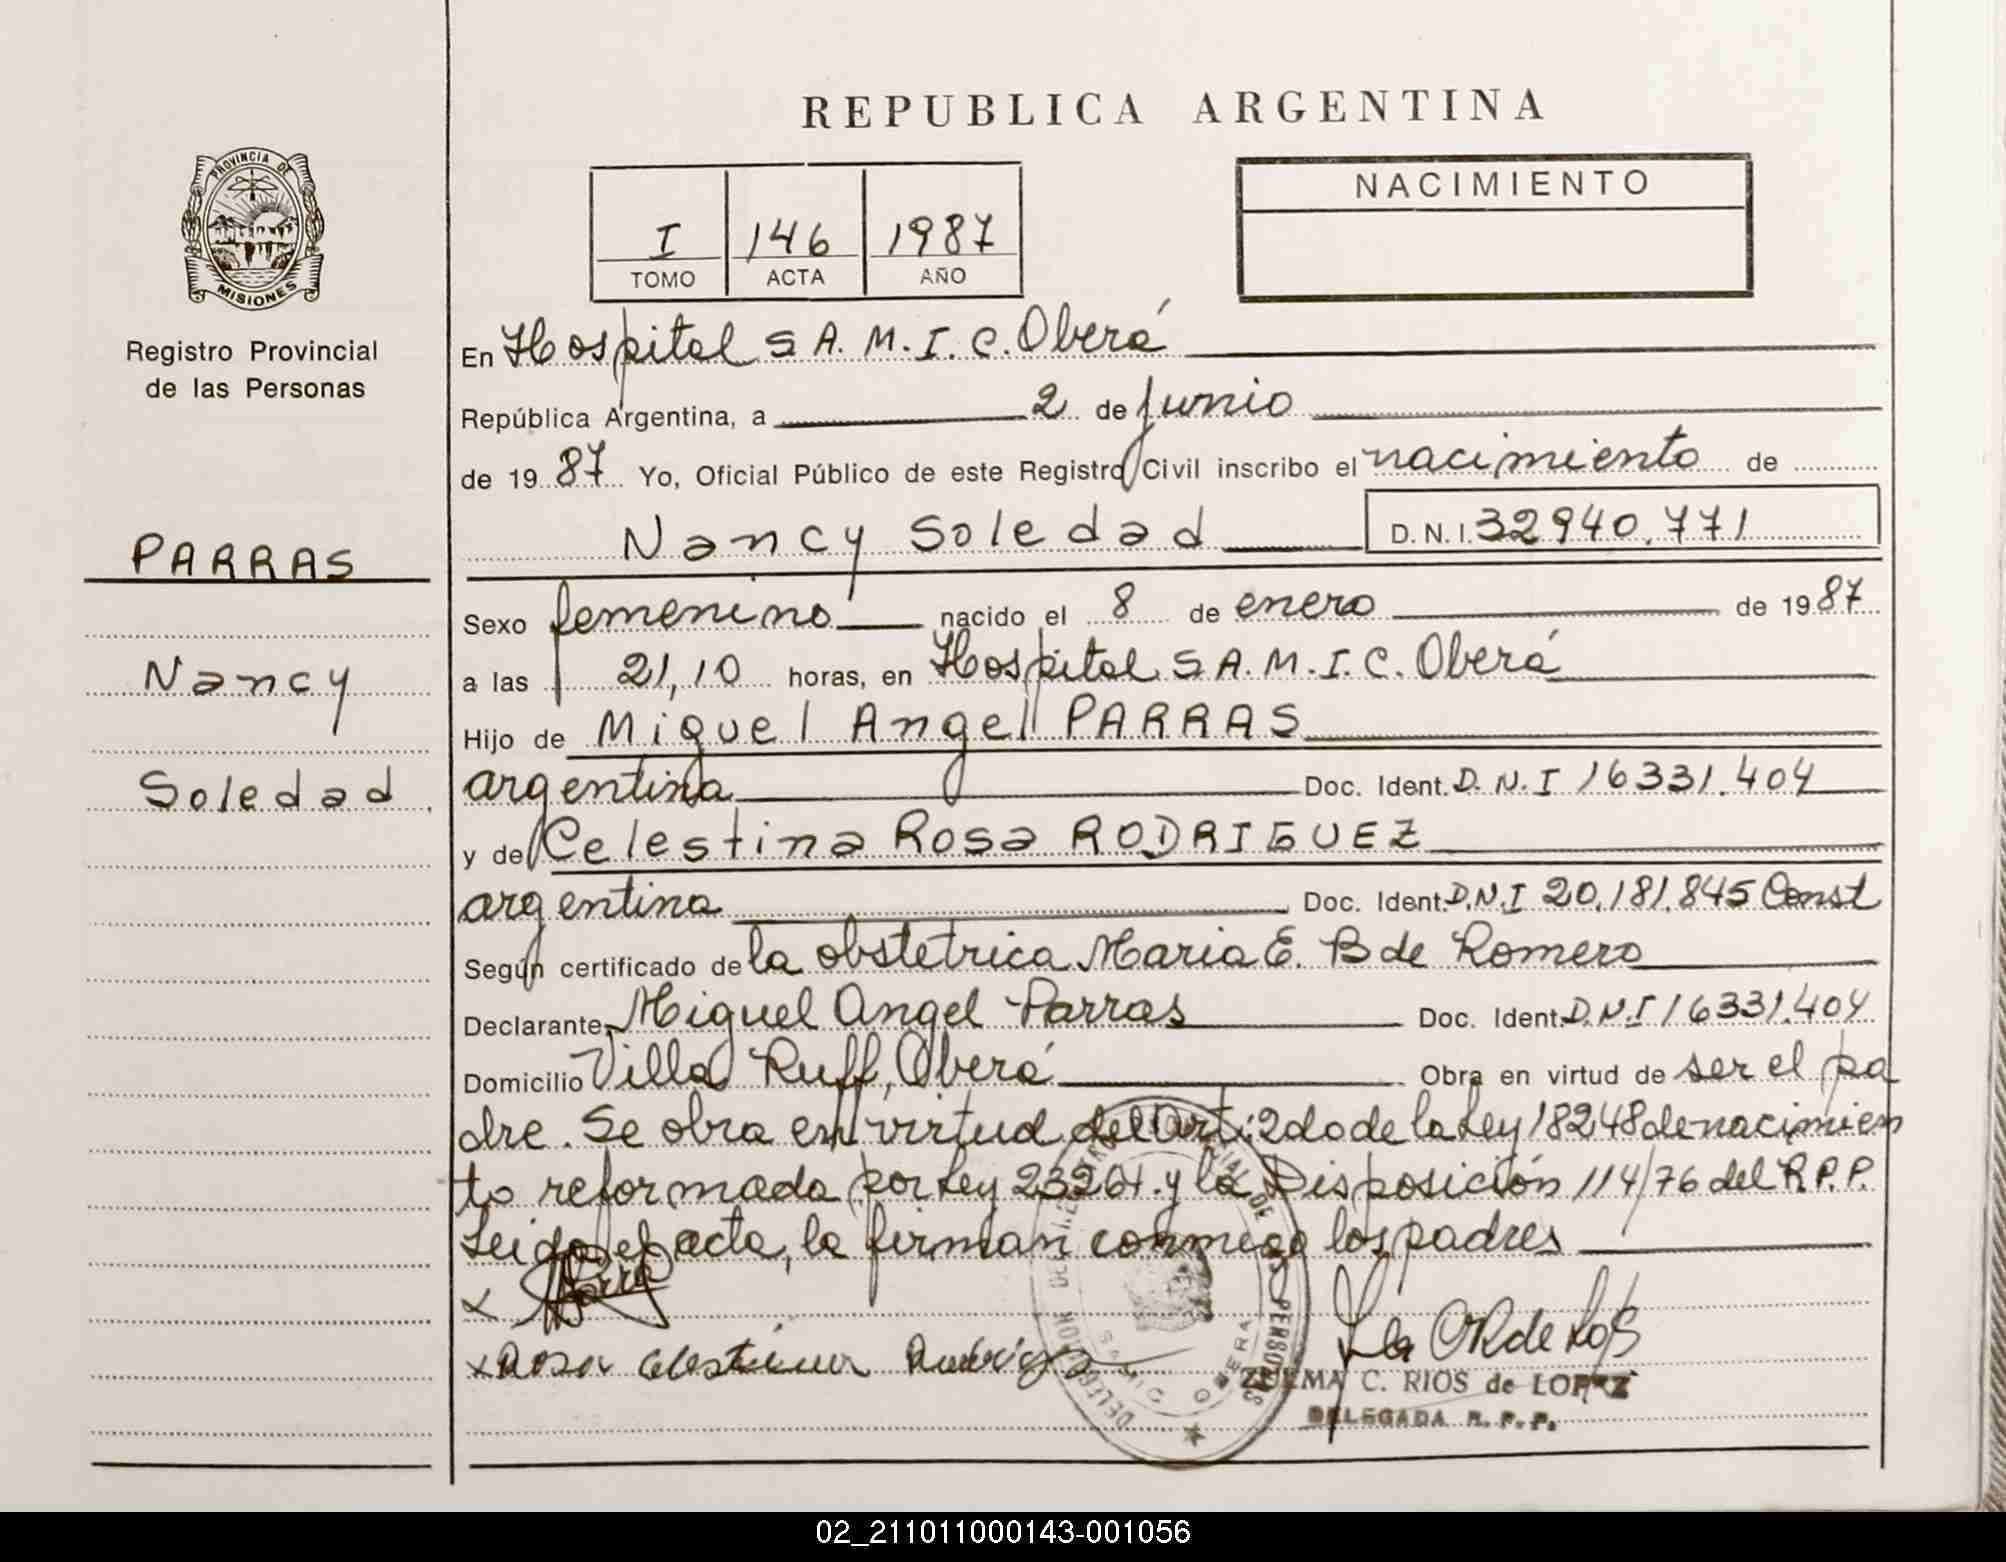 REPUBLICA ARGENTINA
PROVINCIA DE
MISIONES
Registro Provincial
de las Personas
I 146 1987
TOMO ACTA AÑO
NACIMIENTO
En Hospital S.A.M.I.C. Oberá
República Argentina, a 2 de Junio
de 19 87 Yo, Oficial Público de este Registro Civil inscribo el nacimiento de
Nancy Soledad D.N.I. 32940.771
PARRAS
Nancy
Soledad
Sexo femenino nacido el 8 de enero de 19 87
a las 21,10 horas, en Hospital S.A.M.I.C. Oberá
Hijo de Miguel Angel PARRAS
argentina Doc. Ident. D.N.I 16331.404
y de Celestina Rosa RODRIGUEZ
argentina Doc. Ident. D.N.I 20.181.845 Const
Según certificado de la obstetrica Maria E. B de Romero
Declarante Miguel Angel Parras Doc. Ident. D.N.I 16331.404
Domicilio Villa Ruff, Oberá Obra en virtud de ser el pa
dre. Se obra en virtud del Art: 2do de la Ley 18248 de nacimien
to reformada por Ley 23264. y la Disposición 114/76 del R.P.P.
Leida el acta, la firman conmigo los padres
x
x Rosa Celestina
ZULEMA C. RIOS de LOPEZ
DELEGADA R.P.P.
SAMIC OBERA
02_211011000143-001056